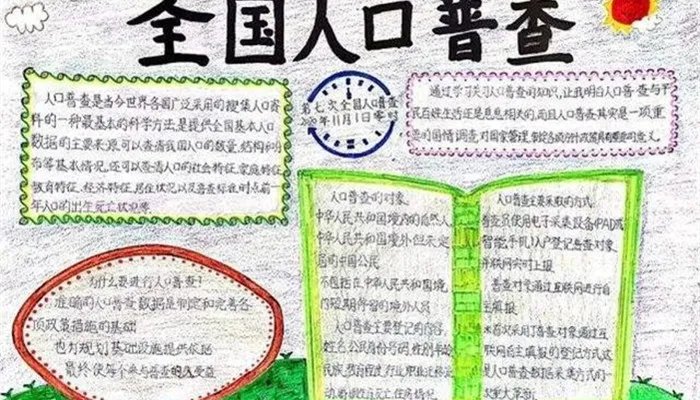 全国人口普查
人口普查是当今世界各国广泛采用的搜集人口资
料的一种最基本的科学方法,是提供全国基本人口
数据的主要来源,可以查清我国人口的数量、结构和分
布等基本情况,还可以查清人口的社会特征,家庭特征
教育特征,经济特征,居住状况以及普查标准时点前一
年人口的出生死亡状况等
第七次全国人口普查
2020年11月1日零时
通过学习关习人口普查的知识,让我明白人口普查与于
民百姓生活还是息息相关的,而且人口普查其实是一项重
要的国情调查,对国家管理,制定各项方针政策具有重要的意义。
为什么要进行人口普查?
准确的人口普查数据是制定和完善各
项政策措施的基础
也为规划基础设施提供依据
最终使每个参与普查的人受益
人口普查的对象.
中华人民共和国境内的自然人
中华人民共和国境外但未定
居的中国公民
不包括在中华人民共和国境
内短期停留的境外人员
人口普查主要登记的内容,
姓名,公民身份号码,性别年龄
民族,教育程度行业,职业迁移流
动,婚姻生育死亡,住房情况
人口普查主要采取的方式.
普查员使用电子采集设备(PAD或
智能手机)入户登记普查对象
互联网实时上报
普查对象通过互联网进行自
主填报
采用普查对象通过互
联网自主填报的登记方式这
是人口普查数据采集方式的一
次重大革命